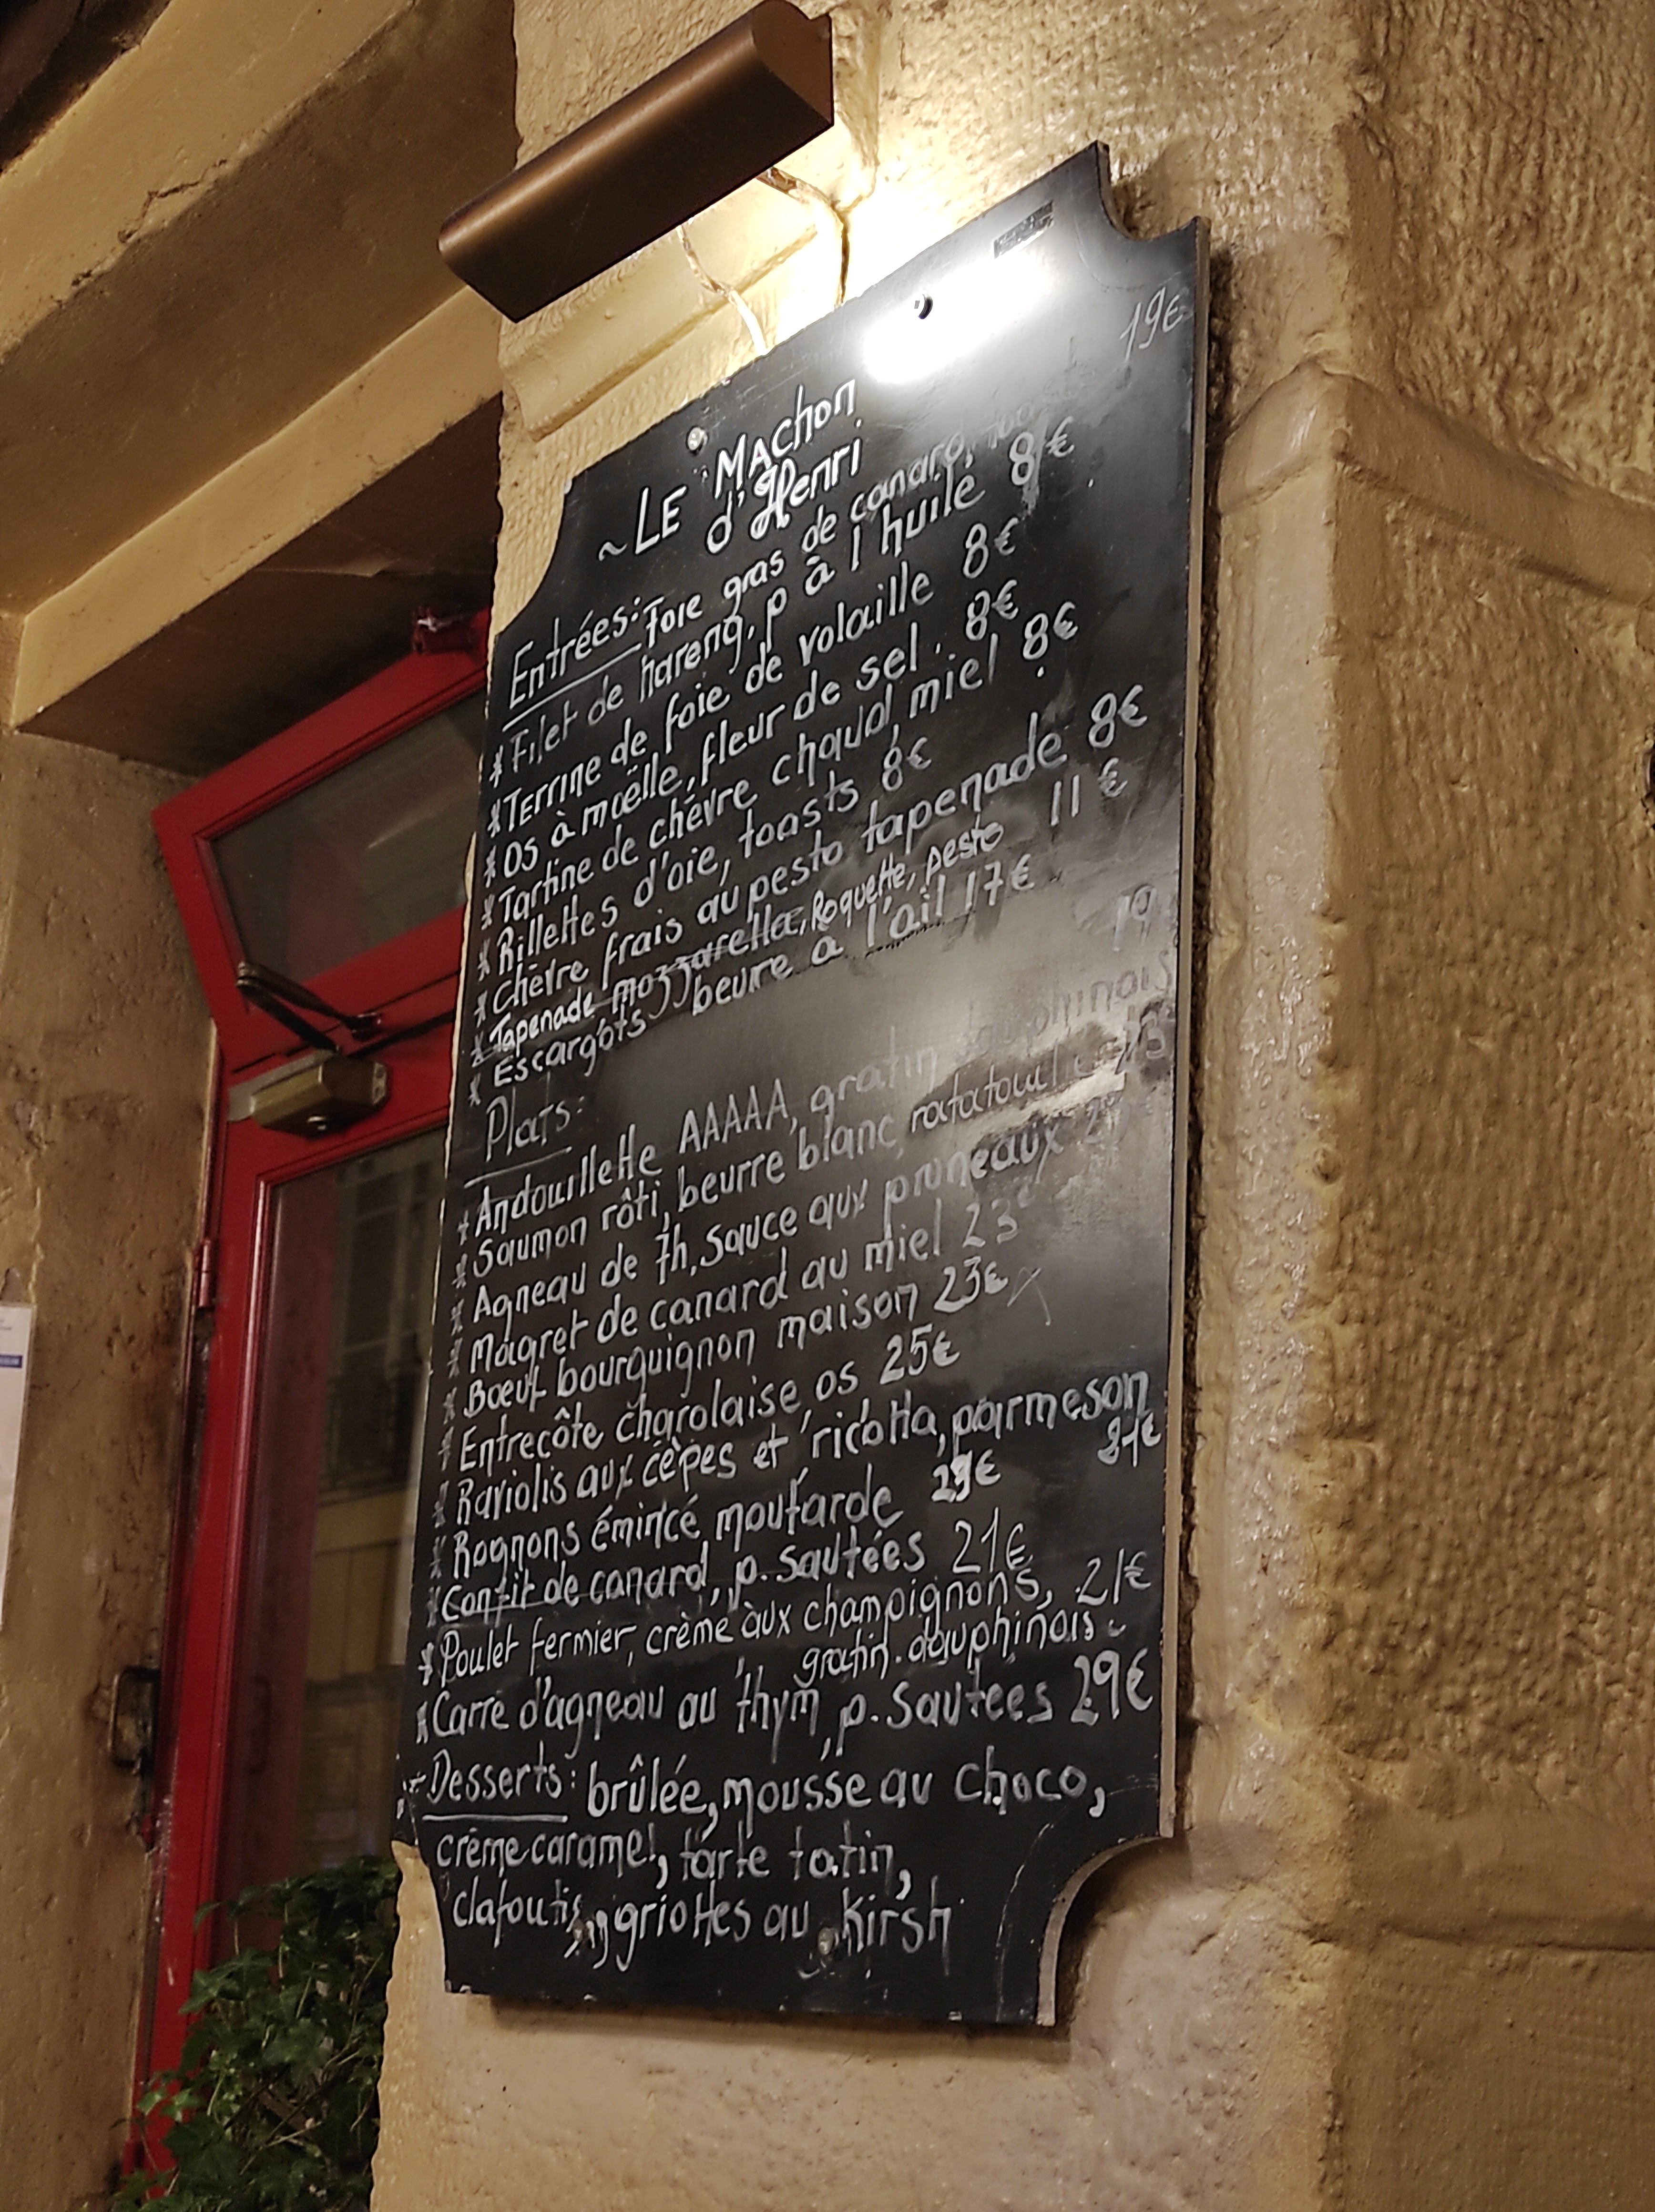 ~ LE MAChon
d'Henri
19€
Entrées: Foie gras de canard,
* Filet de hareng, p à l'huile 8€
* Terrine de foie de volaille 8€
* Os à moëlle, fleur de sel. 8€
* Tartine de chévre chaud, miel 8€
* Rillettes d'oie, toasts 8€
* Chèvre frais au pesto tapenade 8€
* Tapenade mozzarella, Roquette, pesto 11€
* Escargots beurre à l'ail 17€
Plats: 19
* Andouillette AAAAA, gratin dauphinois
* Saumon rôti, beurre blanc, ratatouille 23
* Agneau de 7h, Sauce aux pruneaux
* Magret de canard au miel 23€
* Bœuf bourguignon maison 23€
* Entrecôte charolaise, os 25€
* Raviolis aux cèpes et ricotta, parmeson
21€
* Rognons émincé moutarde
* Confit de canard, p. sautées 21€
* Poulet fermier, crème aux champignons, 21€
gratin dauphinois
* Carré d'agneau au thym, p. Sautees 29€
* Desserts: brûlée, mousse au choco,
crème caramel, tarte tatin,
clafoutis, griottes au Kirsh